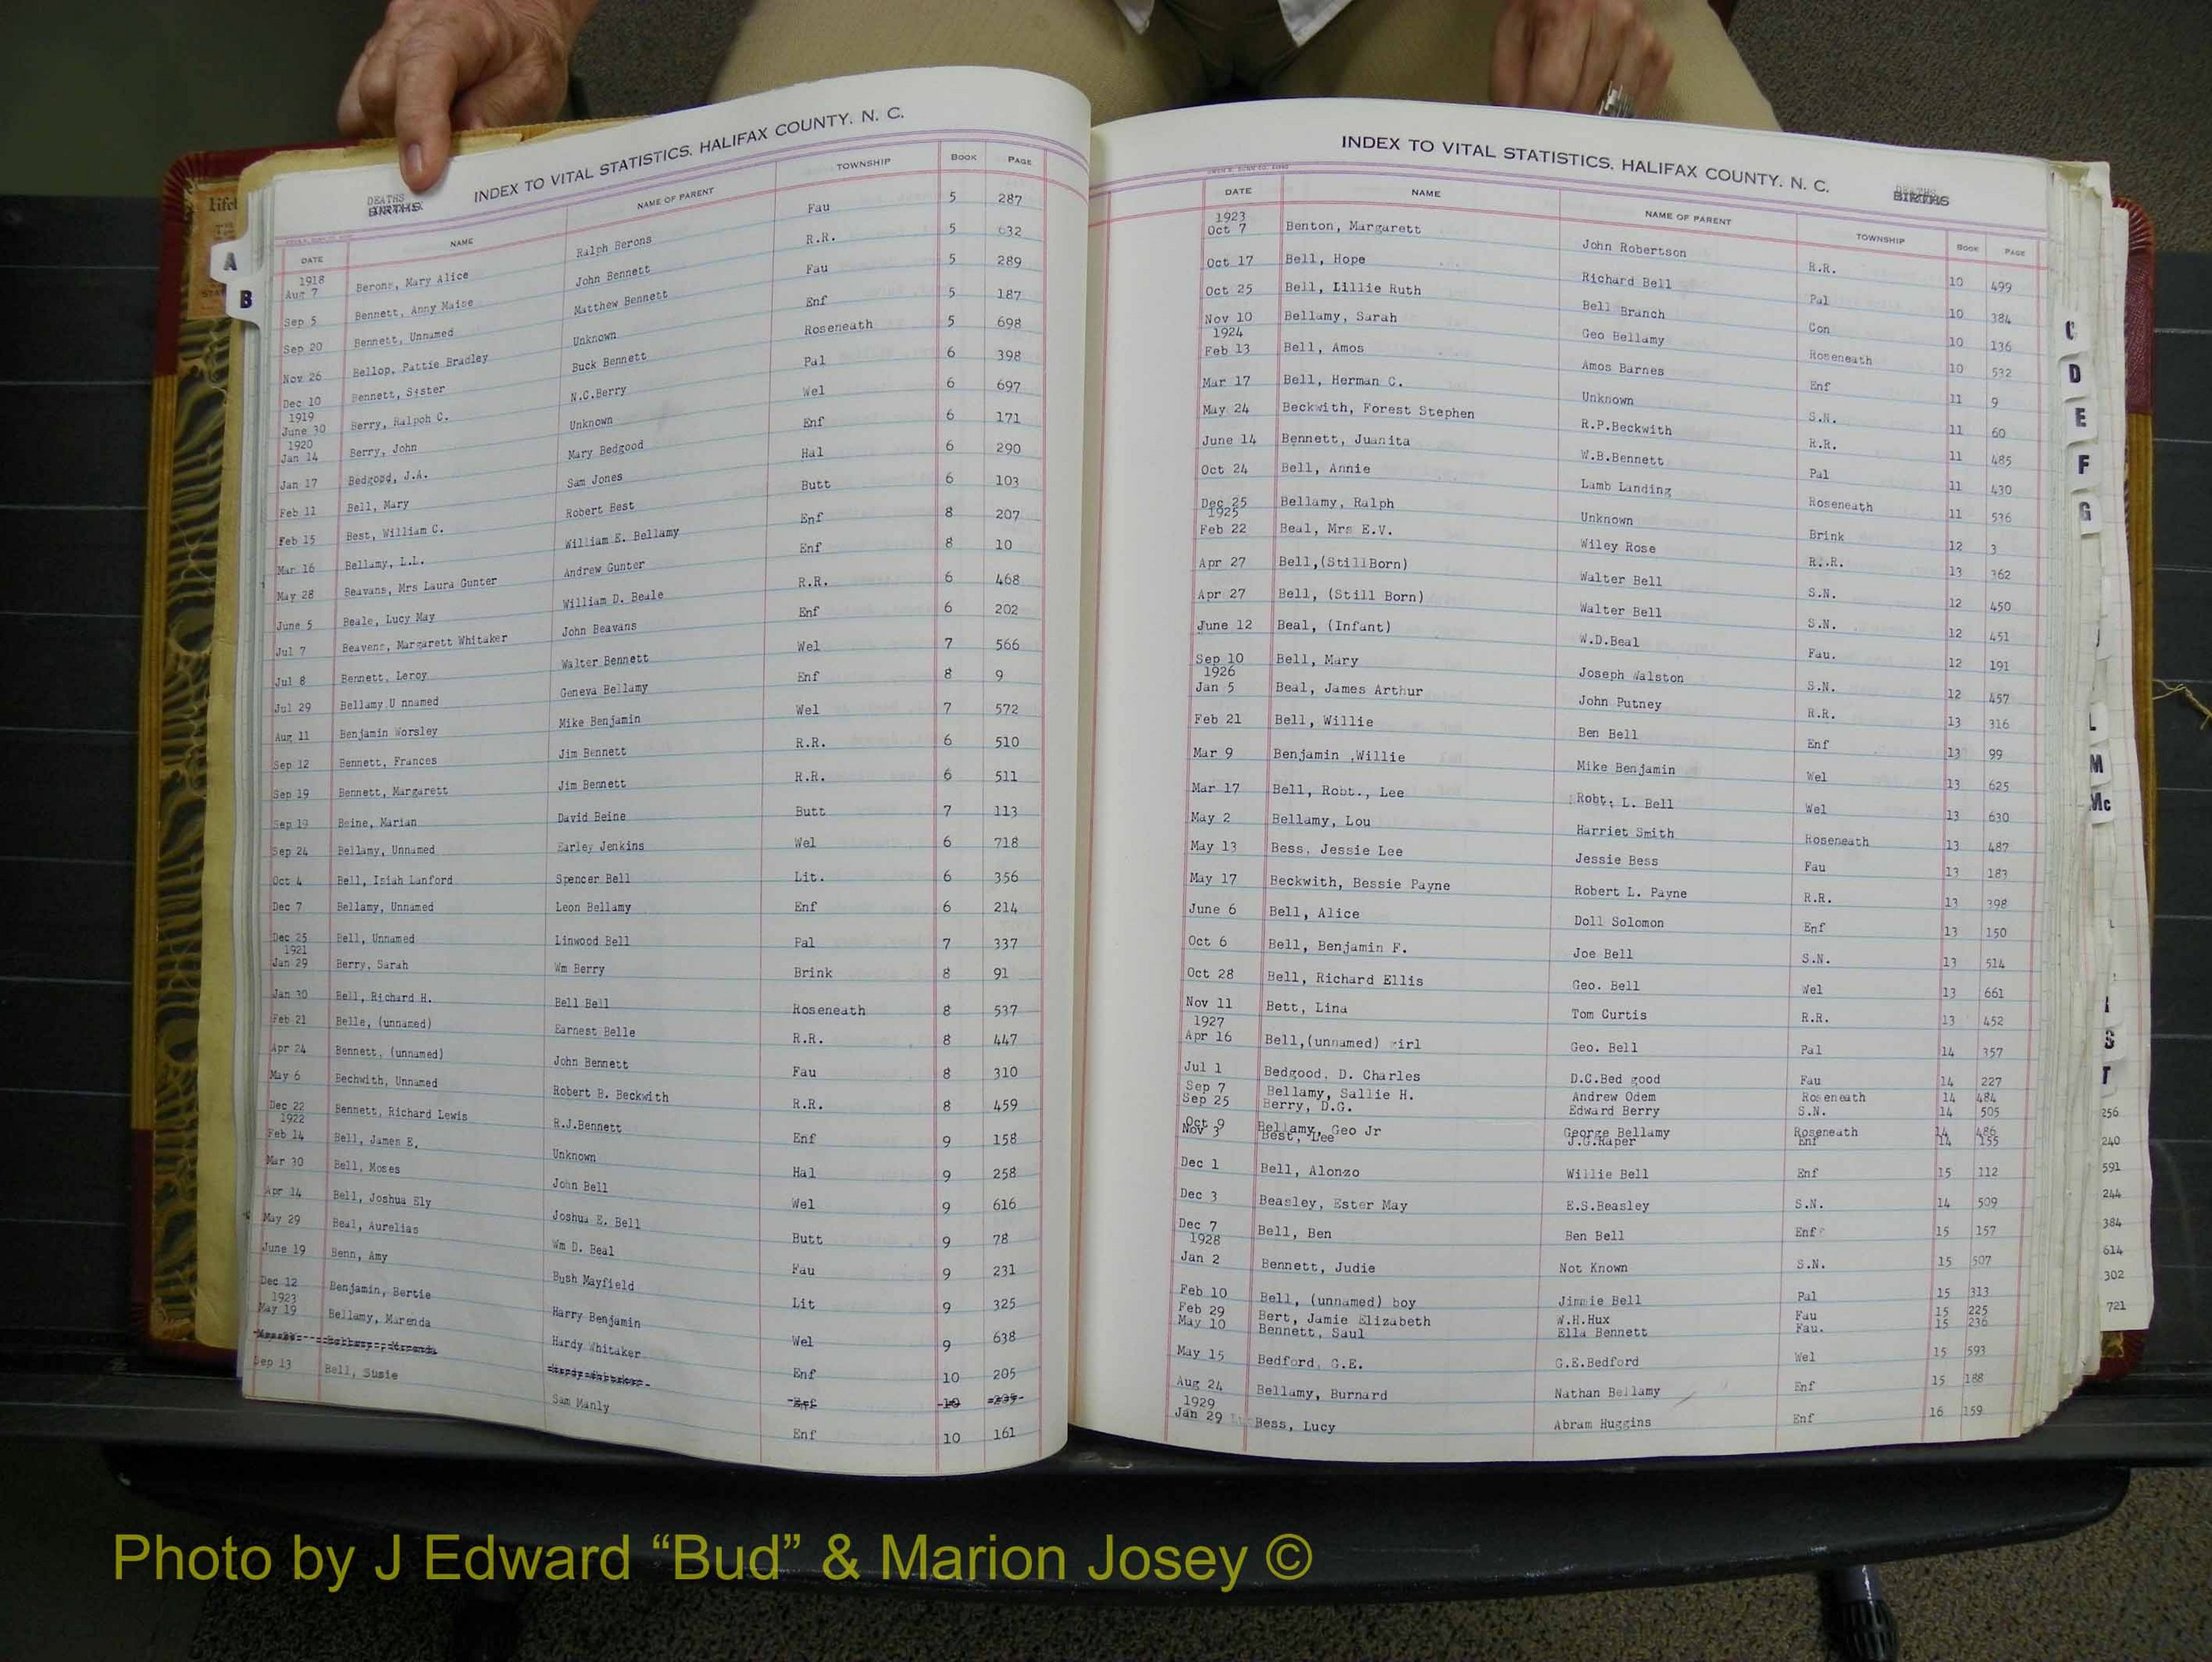 INDEX TO VITAL STATISTICS, HALIFAX COUNTY, N. C.
DEATHS
BIRTHS
DATE NAME NAME OF PARENT TOWNSHIP BOOK PAGE
1918
Aug 7 Berons, Mary Alice Ralph Berons Fau 5 287
Sep 5 Bennett, Anny Maise John Bennett R.R. 5 632
Sep 20 Bennett, Unnamed Matthew Bennett Fau 5 289
Nov 26 Bellop, Pattie Bradley Unknown Enf 5 187
Dec 10 Bennett, Sister Buck Bennett Roseneath 5 698
1919
June 30 Berry, Ralpoh C. N.C.Berry Pal 6 398
1920
Jan 14 Berry, John Unknown Wel 6 697
Jan 17 Bedgood, J.A. Mary Bedgood Enf 6 171
Feb 11 Bell, Mary Sam Jones Hal 6 290
Feb 15 Best, William C. Robert Best Butt 6 103
Mar 16 Bellamy, L.L. William E. Bellamy Enf 8 207
May 28 Beavans, Mrs Laura Gunter Andrew Gunter Enf 8 10
June 5 Beale, Lucy May William D. Beale R.R. 6 468
Jul 7 Beavens, Margarett Whitaker John Beavans Enf 6 202
Jul 8 Bennett, Leroy Walter Bennett Wel 7 566
Jul 29 Bellamy U nnamed Geneva Bellamy Enf 8 9
Aug 11 Benjamin Worsley Mike Benjamin Wel 7 572
Sep 12 Bennett, Frances Jim Bennett R.R. 6 510
Sep 19 Bennett, Margarett Jim Bennett R.R. 6 511
Sep 19 Beine, Marian David Beine Butt 7 113
Sep 24 Bellamy, Unnamed Earley Jenkins Wel 6 718
Oct 4 Bell, Isiah Lanford Spencer Bell Lit. 6 356
Dec 7 Bellamy, Unnamed Leon Bellamy Enf 6 214
Dec 25 Bell, Unnamed Linwood Bell Pal 7 337
1921
Jan 29 Berry, Sarah Wm Berry Brink 8 91
Jan 30 Bell, Richard H. Bell Bell Roseneath 8 537
Feb 21 Belle, (unnamed) Earnest Belle R.R. 8 447
Apr 24 Bennett, (unnamed) John Bennett Fau 8 310
May 6 Bechwith, Unnamed Robert B. Beckwith R.R. 8 459
Dec 22 Bennett, Richard Lewis R.J.Bennett Enf 9 158
1922
Feb 14 Bell, James E. Unknown Hal 9 258
Mar 30 Bell, Moses John Bell Wel 9 616
Apr 14 Bell, Joshua Ely Joshua E. Bell Butt 9 78
May 29 Beal, Aurelias Wm D. Beal Fau 9 231
June 19 Benn, Amy Bush Mayfield Lit 9 325
Dec 12 Benjamin, Bertie Harry Benjamin Wel 9 638
1923
May 19 Bellamy, Marenda Hardy Whitaker Enf 10 205
Sep 13 Bell, Susie Sam Manly Enf 10 161
INDEX TO VITAL STATISTICS, HALIFAX COUNTY, N. C.
DEATHS
BIRTHS
DATE NAME NAME OF PARENT TOWNSHIP BOOK PAGE
1923
Oct 7 Benton, Margarett John Robertson R.R. 10 499
Oct 17 Bell, Hope Richard Bell Pal 10 384
Oct 25 Bell, Lillie Ruth Bell Branch Con 10 136
Nov 10 Bellamy, Sarah Geo Bellamy Roseneath 10 532
1924
Feb 13 Bell, Amos Amos Barnes Enf 11 9
Mar 17 Bell, Herman C. Unknown S.N. 11 60
May 24 Beckwith, Forest Stephen R.P.Beckwith R.R. 11 485
June 14 Bennett, Juanita W.B.Bennett Pal 11 430
Oct 24 Bell, Annie Lamb Landing Roseneath 11 536
Dec 25 Bellamy, Ralph Unknown Brink 12 3
1925
Feb 22 Beal, Mrs E.V. Wiley Rose R.R. 13 362
Apr 27 Bell,(StillBorn) Walter Bell S.N. 12 450
Apr 27 Bell, (Still Born) Walter Bell S.N. 12 451
June 12 Beal, (Infant) W.D.Beal Fau. 12 191
Sep 10 Bell, Mary Joseph Walston S.N. 12 457
1926
Jan 5 Beal, James Arthur John Putney R.R. 13 316
Feb 21 Bell, Willie Ben Bell Enf 13 99
Mar 9 Benjamin ,Willie Mike Benjamin Wel 13 625
Mar 17 Bell, Robt., Lee Robt. L. Bell Wel 13 630
May 2 Bellamy, Lou Harriet Smith Roseneath 13 487
May 13 Bess, Jessie Lee Jessie Bess Fau 13 183
May 17 Beckwith, Bessie Payne Robert L. Payne R.R. 13 398
June 6 Bell, Alice Doll Solomon Enf 13 150
Oct 6 Bell, Benjamin F. Joe Bell S.N. 13 514
Oct 28 Bell, Richard Ellis Geo. Bell Wel 13 661
Nov 11 Bett, Lina Tom Curtis R.R. 13 452
1927
Apr 16 Bell,(unnamed) girl Geo. Bell Pal 14 357
Jul 1 Bedgood, D. Charles D.C.Bed good Fau 14 227
Sep 7 Bellamy, Sallie H. Andrew Odem Roseneath 14 484
Sep 25 Berry, D.G. Edward Berry S.N. 14 505
Oct 9 Bellamy, Geo Jr George Bellamy Roseneath 14 486
Nov 3 Best, Lee J.G.Raper Enf 14 155
Dec 1 Bell, Alonzo Willie Bell Enf 15 112
Dec 3 Beasley, Ester May E.S.Beasley S.N. 14 509
Dec 7 Bell, Ben Ben Bell Enf 15 157
1928
Jan 2 Bennett, Judie Not Known S.N. 15 507
Feb 10 Bell, (unnamed) boy Jimmie Bell Pal 15 313
Feb 29 Bert, Jamie Elizabeth W.H.Hux Fau 15 225
May 10 Bennett, Saul Ella Bennett Fau. 15 236
May 15 Bedford, G.E. G.E.Bedford Wel 15 593
Aug 24 Bellamy, Burnard Nathan Bellamy Enf 15 188
1929
Jan 29 Bess, Lucy Abram Huggins Enf 16 159
A
B
C
D
E
F
G
L
M
Mc
S
T
256
240
591
244
384
614
302
721
Photo by J Edward “Bud” & Marion Josey ©